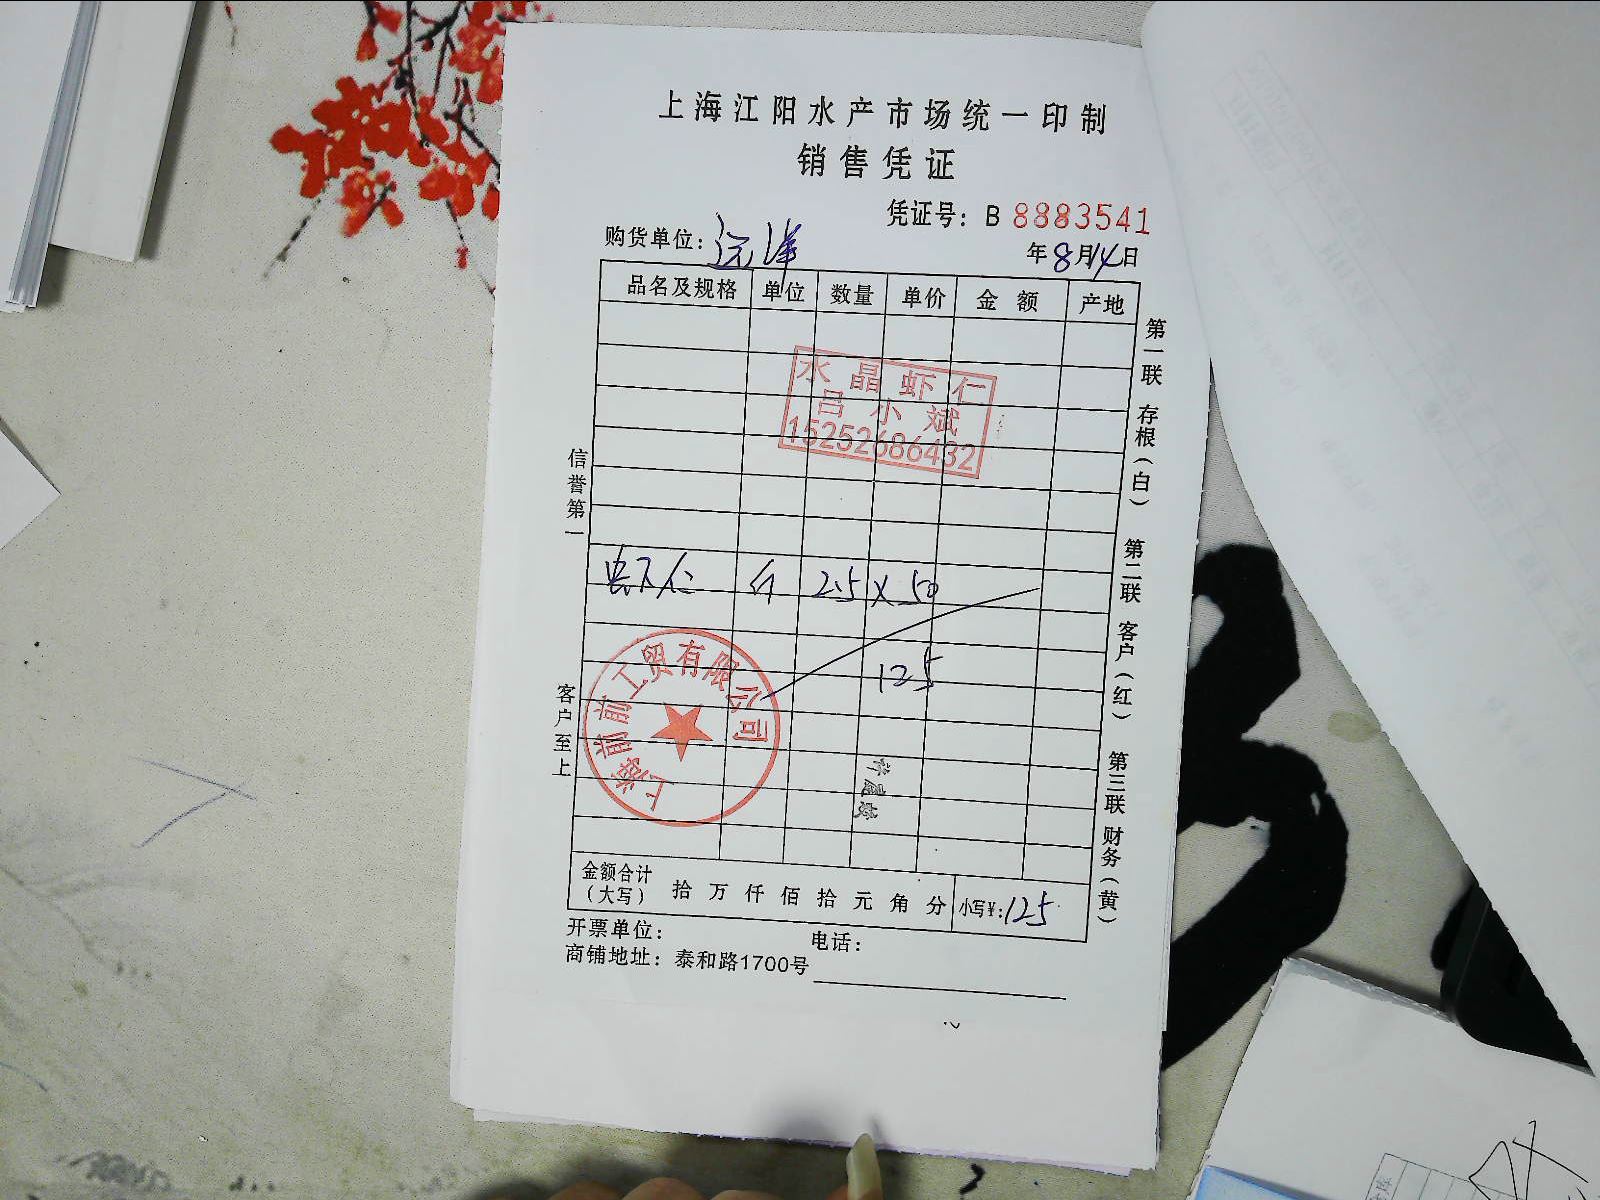 上海江阳水产市场统一印制
销售凭证
凭证号：B 8883541
购货单位：远洋
年8月14日
品名及规格 单位 数量 单价 金额 产地
水晶虾仁
吕小斌
15252686432
虾仁 斤 2.5 × 50
125
上海前前工贸有限公司
金额合计（大写） 拾 万 仟 佰 拾 元 角 分 小写¥：125
开票单位： 电话：
商铺地址：泰和路1700号
信誉第一 客户至上
第一联 存根（白） 第二联 客户（红） 第三联 财务（黄）